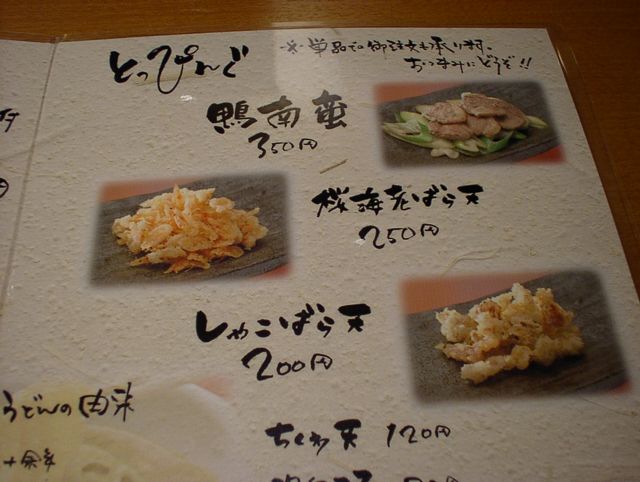 とっぴんぐ
※単品での御注文も承ります。
おつまみにどうぞ!!
鴨南蛮
350円
桜海老ばら天
250円
しゃこばら天
200円
うどんの由来
ちくわ天 120円